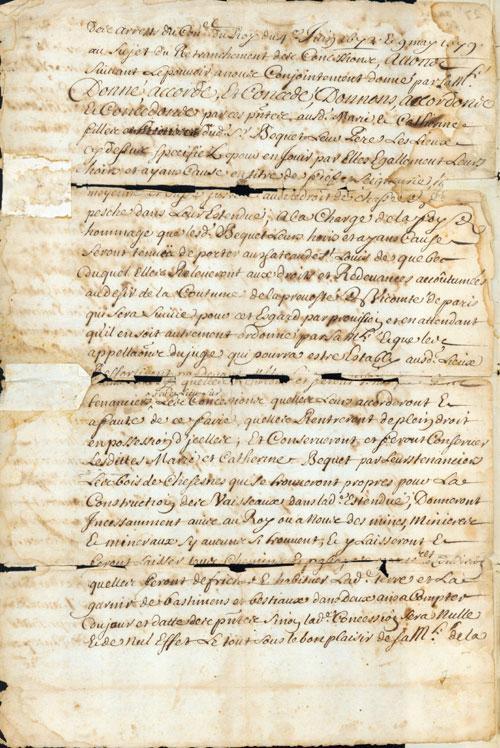 des arrests du Con.el du Roy du 4.e Juin 1672 et 9 may 1679
au Sujet du Retranchement des Concessions, Auons
Suiuant Le pouuoir a nous Conjointement donné par sa M.té
Donné accordé, Et Concedé, Donnons, accordons
Et Concedons par ces p̃ntes, ausd. Marie & Catherine
filles dud. S.r Bequet Leur Pere Les Lieux
cy dessus specifiez, pour en Jouir par Elles Egallement Leurs
hoirs et ayans Cause en titre de fief & Seigneurie,
moyenne et auec droit de chasse &
pesche dans Leur Estendue, A la Charge de la foy &
hommage que lesd. Bequet Leurs hoirs et ayans Cause
Seront tenus de porter au chateau St. Louis de quebec
duquel Elles Releueront aux droits et Redeuances accoutumées
au desir de la Coutume de la preuosté & Vicomte de paris
qui Sera Suiuie pour cet Egard par prouision et en attendant
qu'il en soit autrement ordonné par Sa M.té Et que les
appellations du Juge qui pourra estre Estably ausd. Lieux
Ressortiront
tenanciers Les Concessions qu'elles Leurs accorderont Et
affaute de ce faire, qu'elles Rentreront de plein droit
en possession d'jcelles, Et Conserueront et feront Conseruer
Lesdittes Marie et Catherine Bequet par Leurs tenanciers
Les bois de Chesnes qui se trouueront propres pour La
Construction des Vaisseaux dans lad. Estendue, Donneront
Incessamment auis au Roy ou a Nous des mines, Minieres
Et mineraux Sy aucuns Si trouuent, Et y Laisseront Et
feront Laisser tous Chemins & passages
qu'elles feront defricher & habituer Lad. terre et La
garnir de bastimens et bestiaux dans deux ans a Compter
du jour et datte des p̃ntes Sinon lad. Concession Sera Nulle
Et de Nul Effet Le tout sous le bon plaisir de sa M.té de la